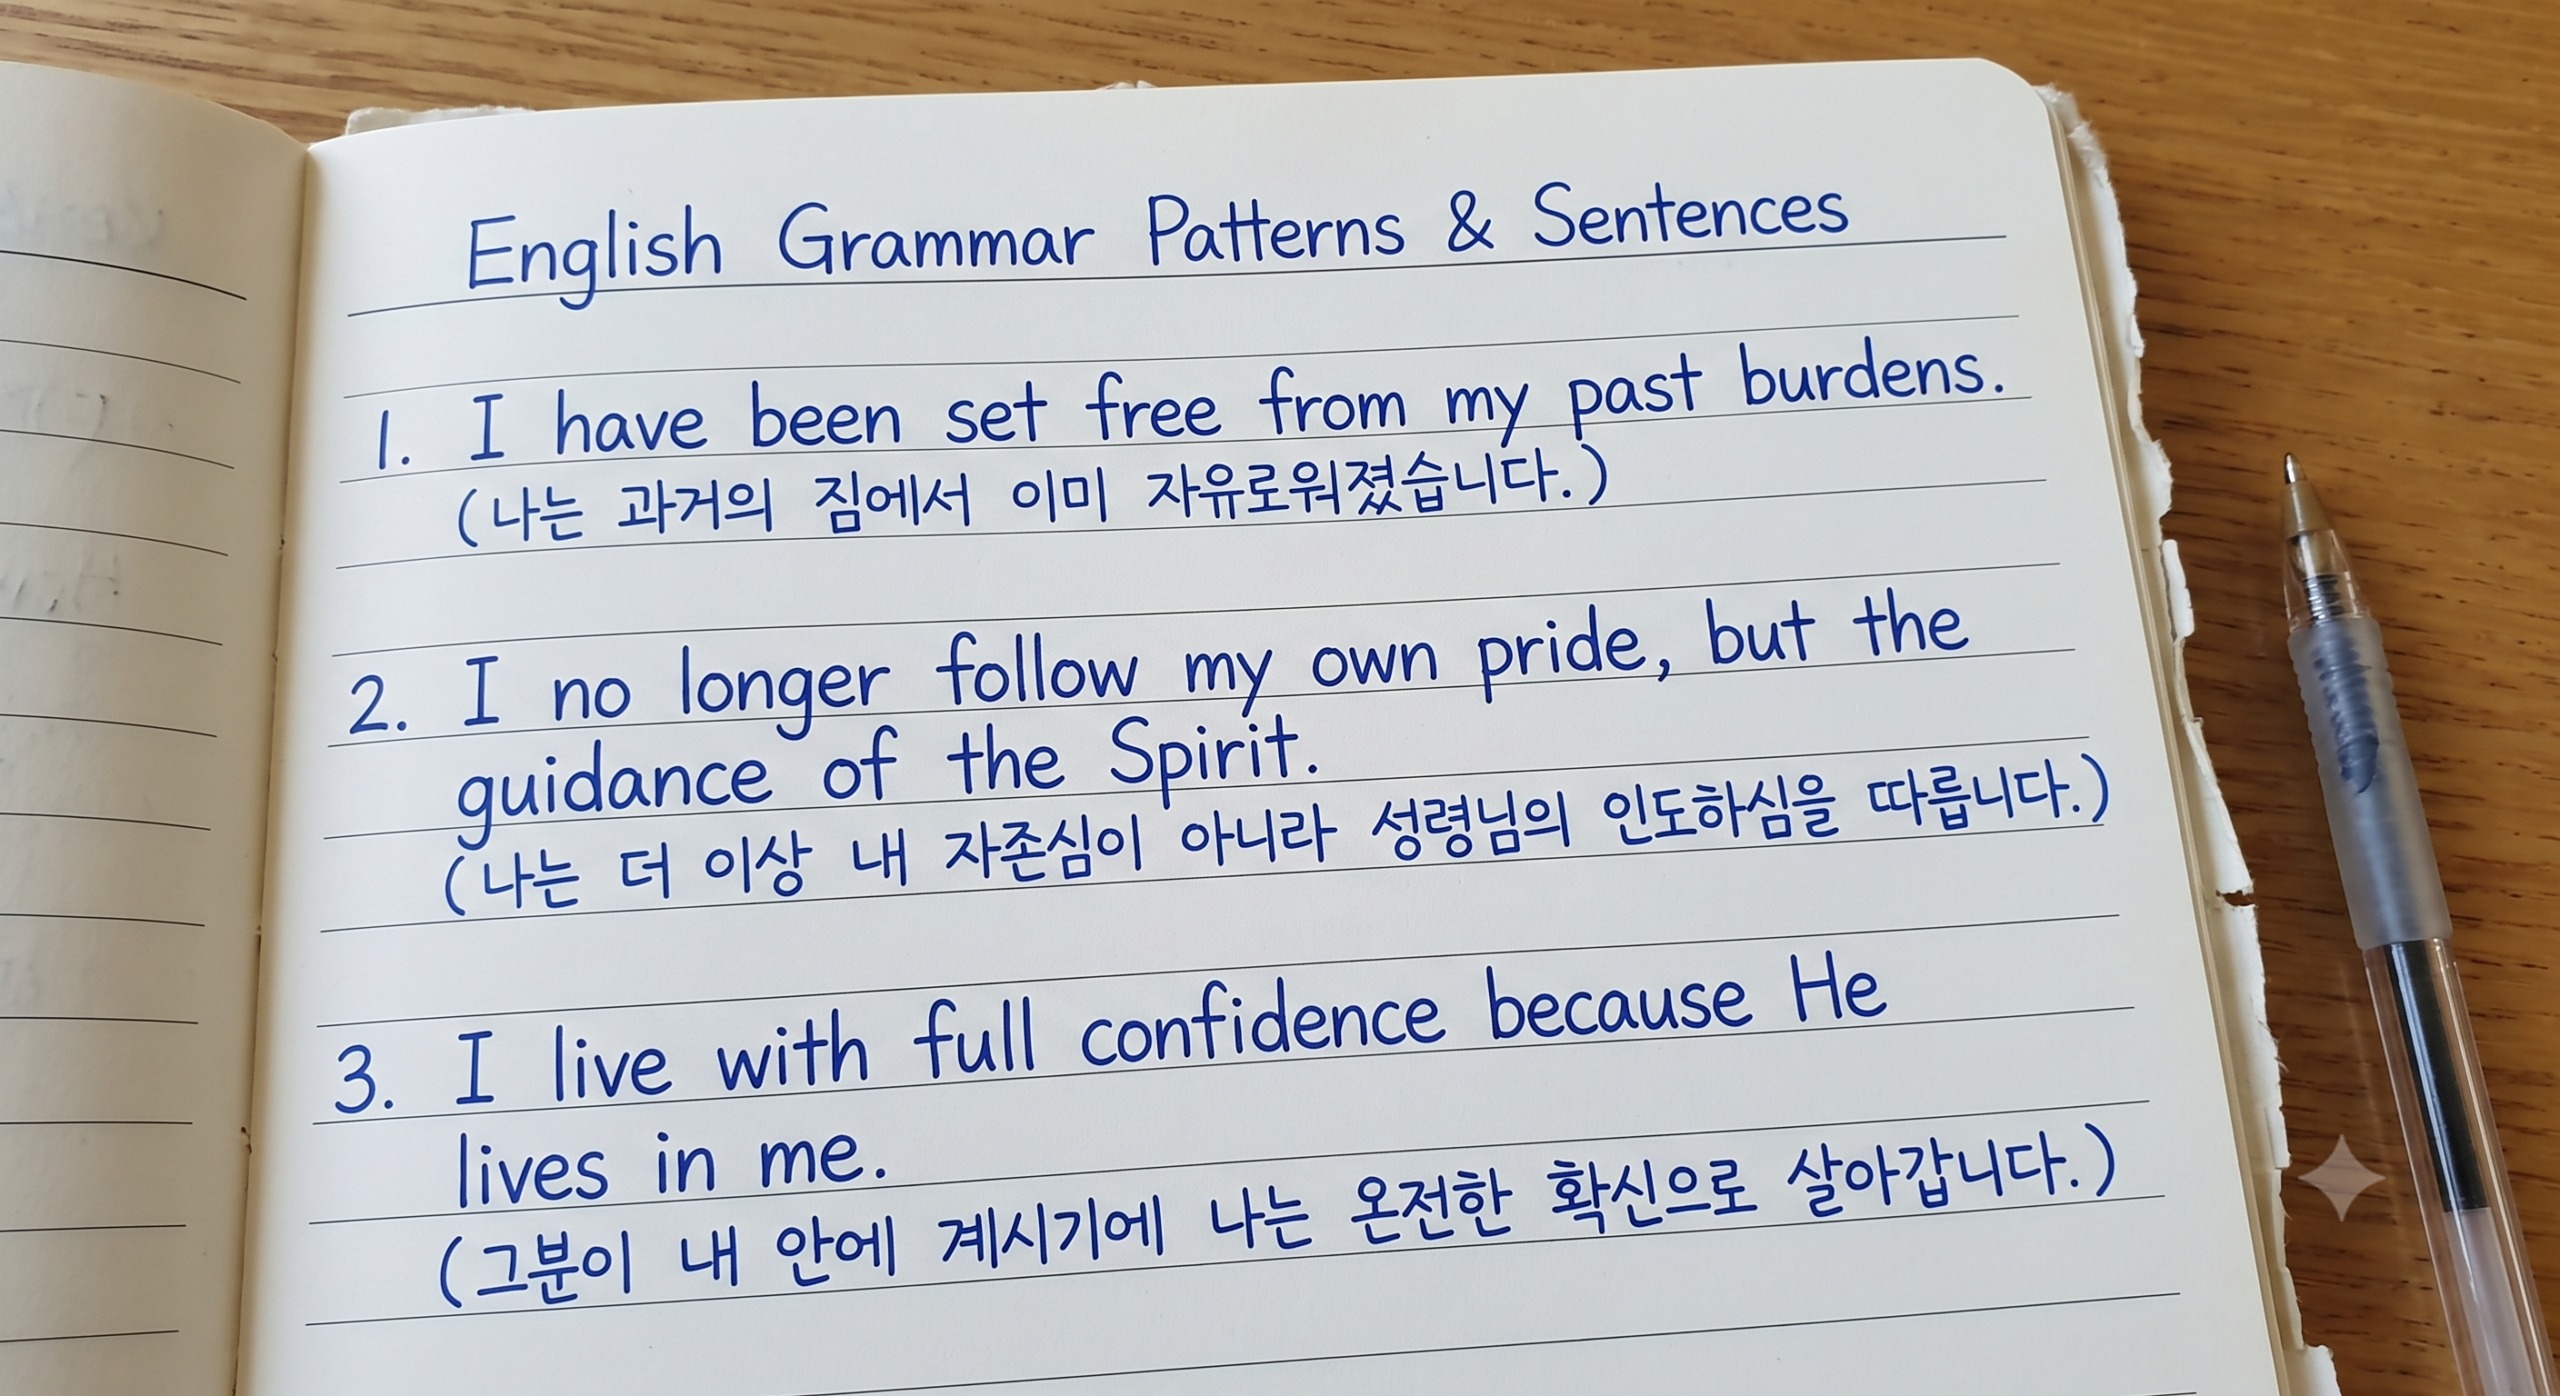 English Grammar Patterns & Sentences
1. I have been set free from my past burdens.
(나는 과거의 짐에서 이미 자유로워졌습니다.)
2. I no longer follow my own pride, but the
guidance of the Spirit.
(나는 더 이상 내 자존심이 아니라 성령님의 인도하심을 따릅니다.)
3. I live with full confidence because He
lives in me.
(그분이 내 안에 계시기에 나는 온전한 확신으로 살아갑니다.)